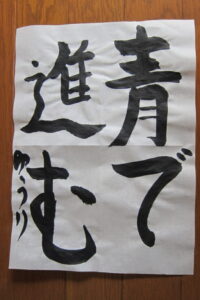 青で
進む
ゆうり